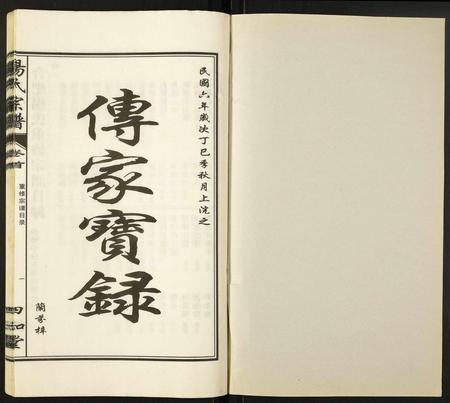 民國六年歲次丁巳季秋月上浣之
傳家寶錄
蘭芬梓
楊氏宗譜
卷首
重修宗谱目录
一
四知堂